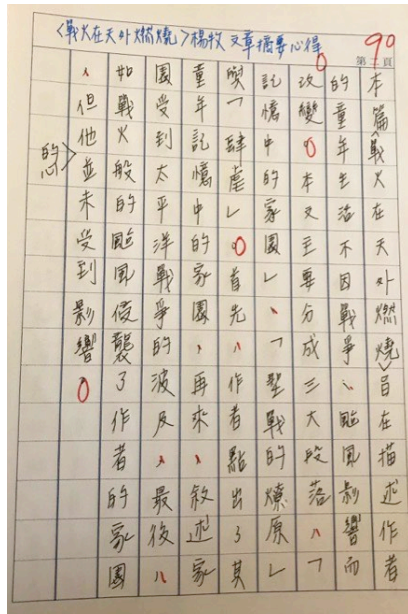 〈戰火在天外燃燒〉楊牧 文章摘要心得
90
本篇〈戰火在天外燃燒〉旨在描述作者
的童年生活不因戰爭、颱風影響而
改變。本文主要分成三大段落,「
記憶中的家園」、「聖戰的燎原」
與「肆虐」。首先,作者點出了其
童年記憶中的家園,再來,敘述家
園受到太平洋戰爭的波及,最後,
如戰火般的颱風侵襲了作者的家園
,但他並未受到影響。
的心